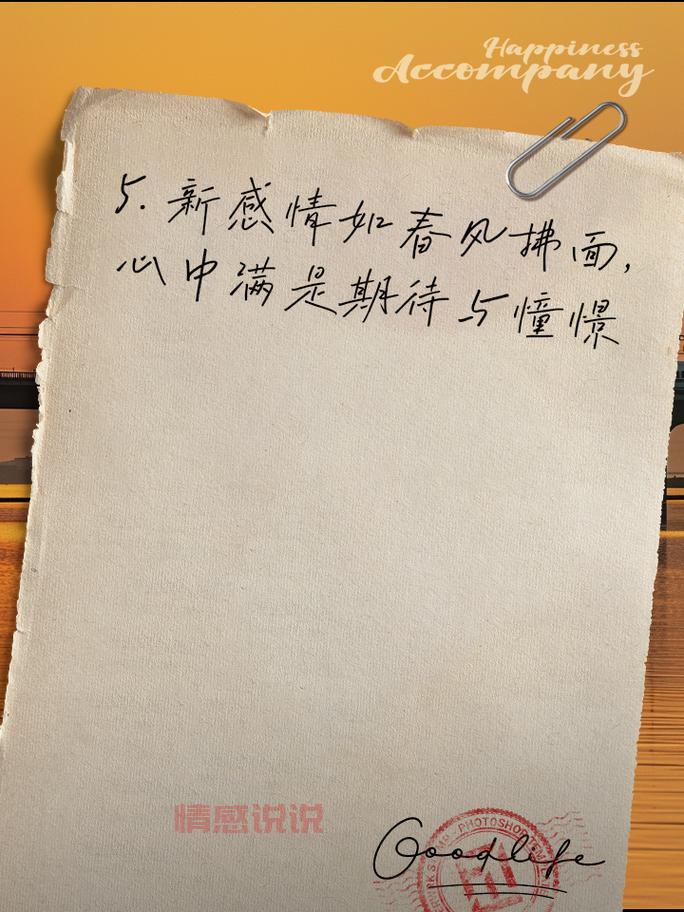 Happiness
Accompany
5. 新感情如春风拂面,
心中满是期待与憧憬
情感说说
PHOTOSHOP
Goodlife